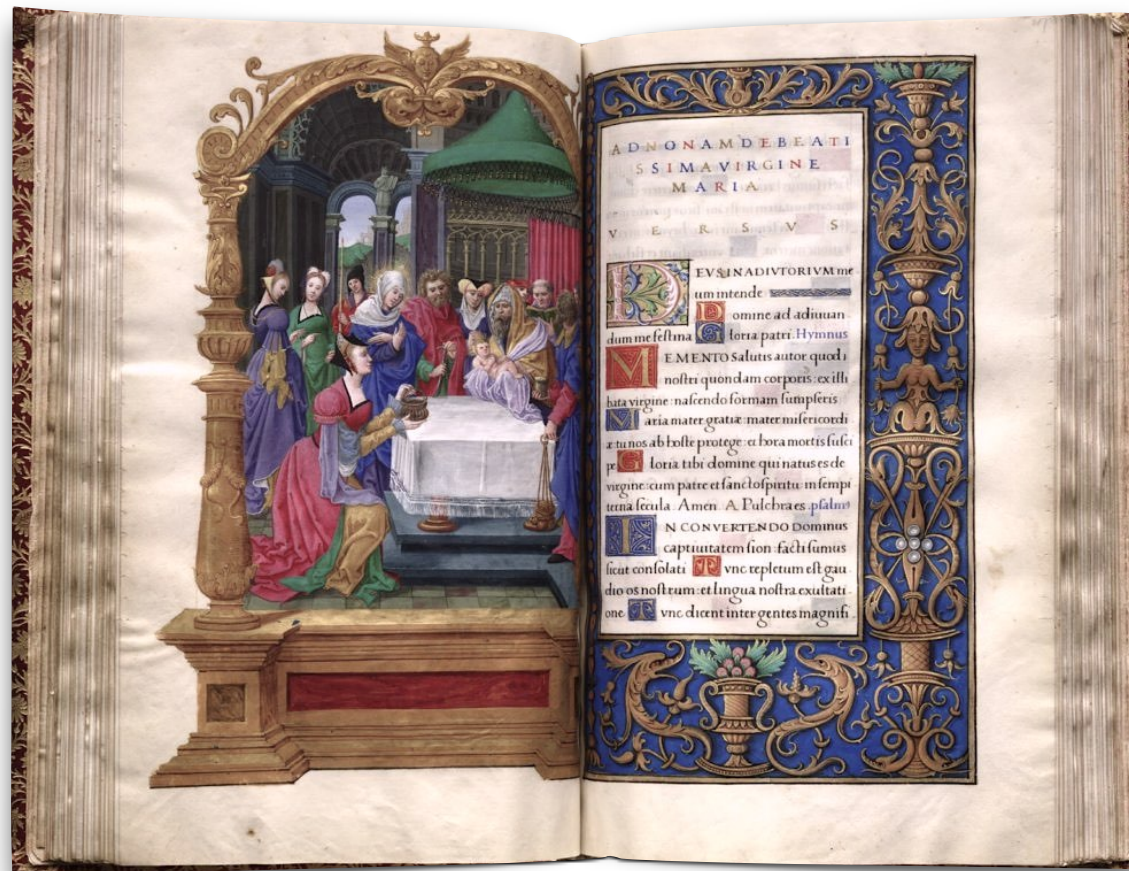 ADNONAMDEBEATI
SSIMAVIRGINE
MARIA
VERSVS
DEVS INADIVTORIVM me
um intende
Domine ad adiuuan
dum me festina Gloria patri. Hymnus
MEMENTO Salutis autor quod
nostri quondam corporis: ex illi
bata virgine: nascendo formam sumpseris
Maria mater gratiæ: mater misericordi
æ tu nos ab hoste protege: et hora mortis susci
pe Gloria tibi domine qui natus es de
virgine: cum patre et sancto spiritu: in sempi
terna secula. Amen. A. Pulchra es. psalmus
IN CONVERTENDO Dominus
captiuitatem sion: facti sumus
sicut consolati Tunc repletum est gau
dio os nostrum: et lingua nostra exultati
one Tunc dicent inter gentes magnifi